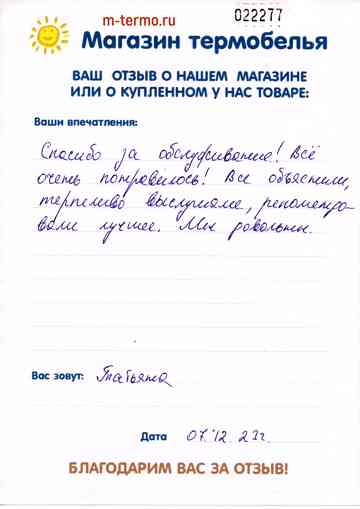 m-termo.ru
022277
Магазин термобелья
ВАШ ОТЗЫВ О НАШЕМ МАГАЗИНЕ
ИЛИ О КУПЛЕННОМ У НАС ТОВАРЕ:
Ваши впечатления:
Спасибо за обслуживание! Всё
очень понравилось! Все объяснили,
терпеливо выслушали, рекомендо-
вали лучшее. Мы довольны.
Вас зовут: Татьяна
Дата 07.12.23г.
БЛАГОДАРИМ ВАС ЗА ОТЗЫВ!